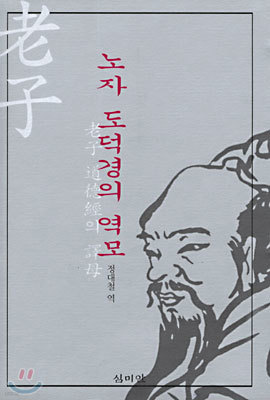 老子
노자 도덕경의 역모
老子 道德經의 譯母
정대철 역
심미안